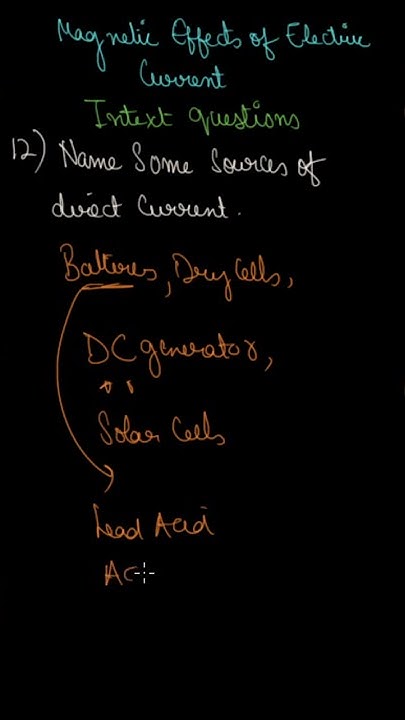 Magnetic Effects of Electric
Current
Intext questions
12) Name Some Sources of
direct Current.
Batteries, Dry Cells,
DC generator,
Solar Cells
Lead Acid
Ac